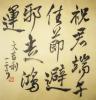 祝君端午
佳節避
邪走鴻
運